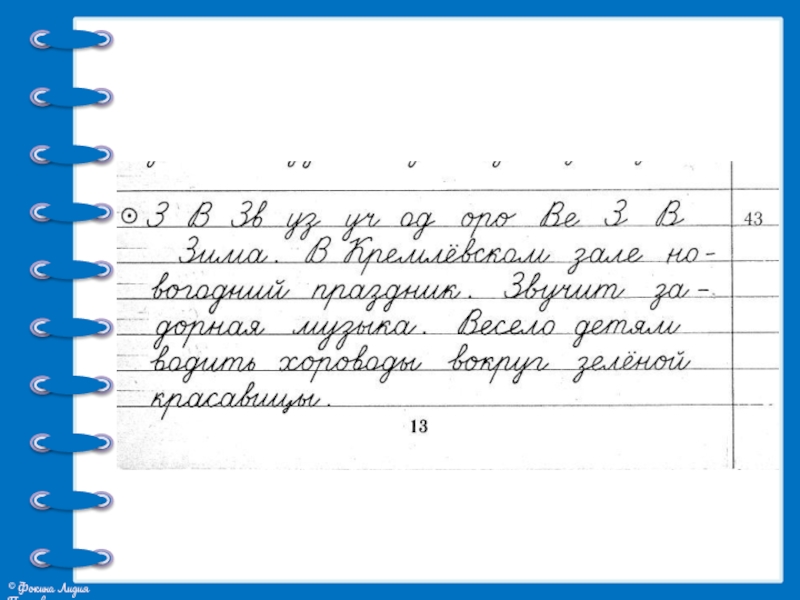 З В Зв уз уч од оро Ве З В 43
Зима. В Кремлёвском зале но-
вогодний праздник. Звучит за-
дорная музыка. Весело детям
водить хороводы вокруг зелёной
красавицы.
13
© Фокина Лидия